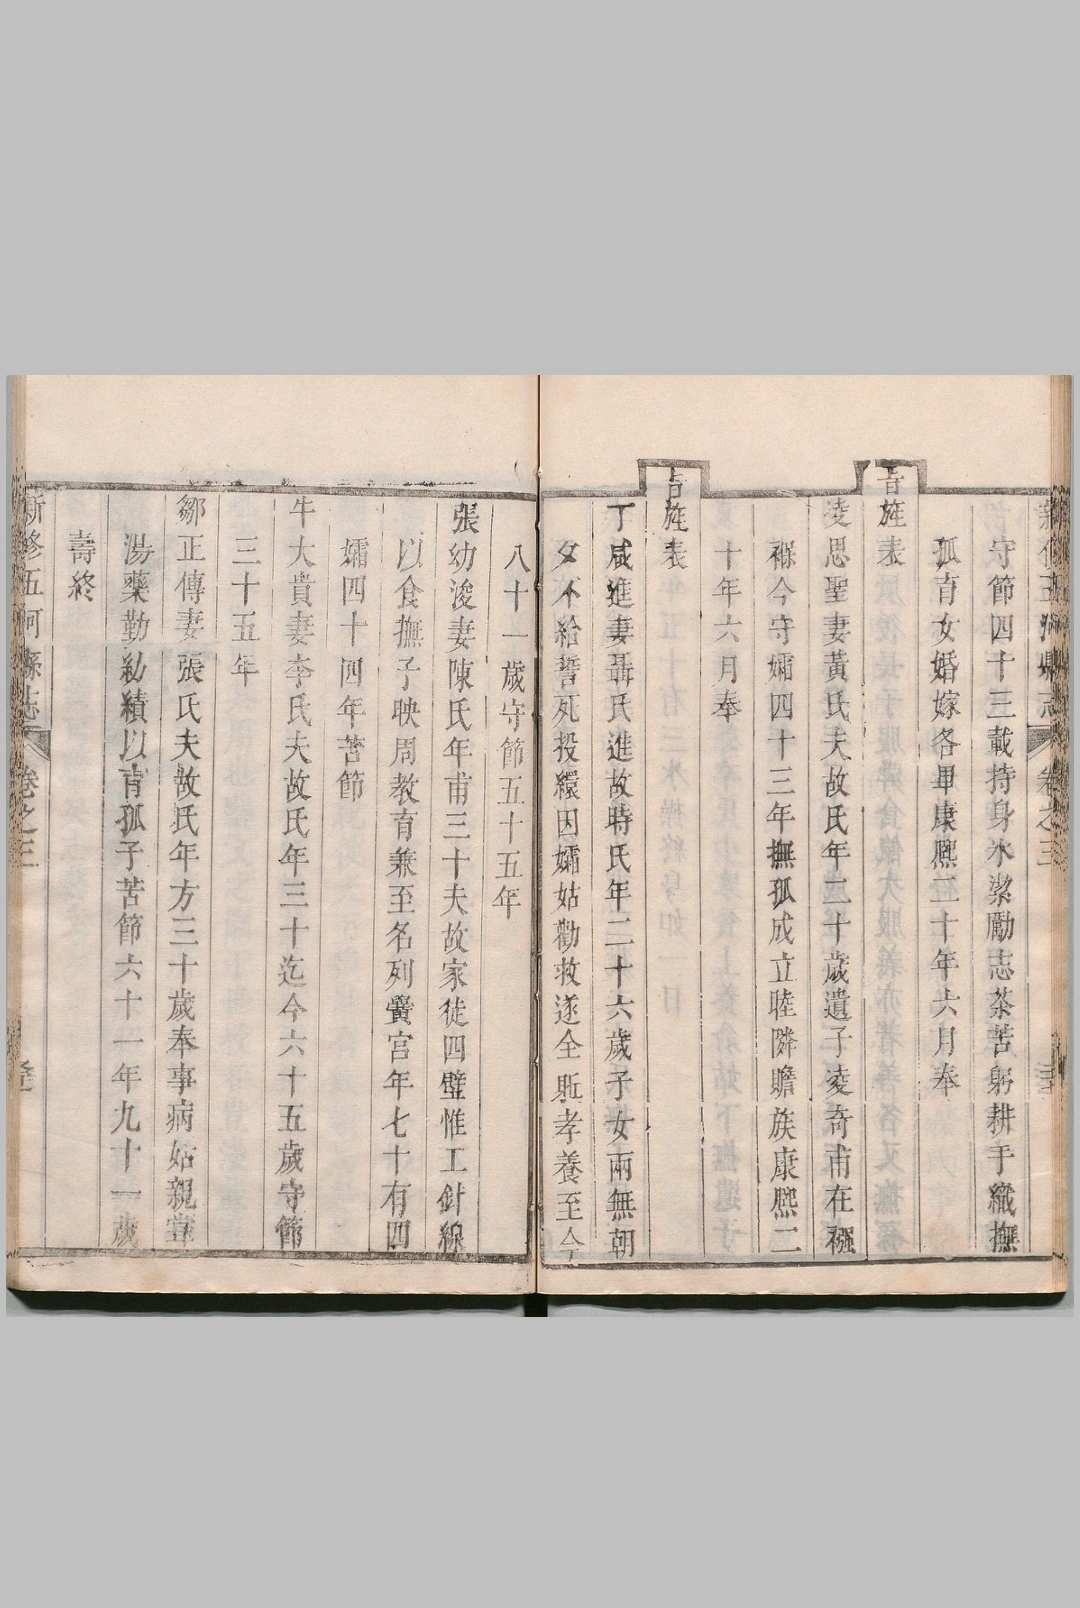 新修五河縣志 卷之三
守節四十三載持身氷潔勵志茶苦躬耕手織撫
孤育女婚嫁各畢康熈二十年六月奉
旨旌表
凌思聖妻黃氏夫故氏年二十歲遺子凌奇甫在襁
褓今守孀四十三年撫孤成立睦隣贍族康熈二
十年六月奉
旨旌表
丁咸進妻聶氏進故時氏年二十六歲子女兩無朝
夕不給誓死投繯因孀姑勸救遂全賍孝養至今
八十一歲守節五十五年
張幼浚妻陳氏年甫三十夫故家徒四壁惟工針線
以食撫子映周教育兼至名列黌宮年七十有四
孀四十四年苦節
牛大貴妻李氏夫故氏年三十迄今六十五歲守節
三十五年
鄒正傳妻張氏夫故氏年方三十歲奉事病姑親嘗
湯藥勤劬績以育孤子苦節六十一年九十一歲
壽終
新修五河縣志 卷之三